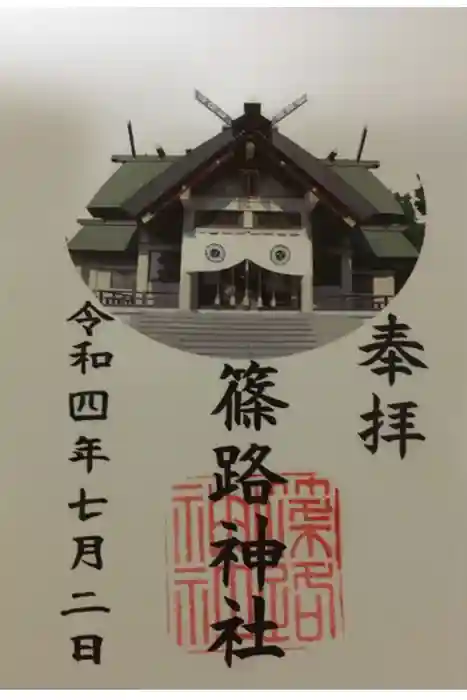 奉拝
篠路神社
篠路神社
令和四年七月二日